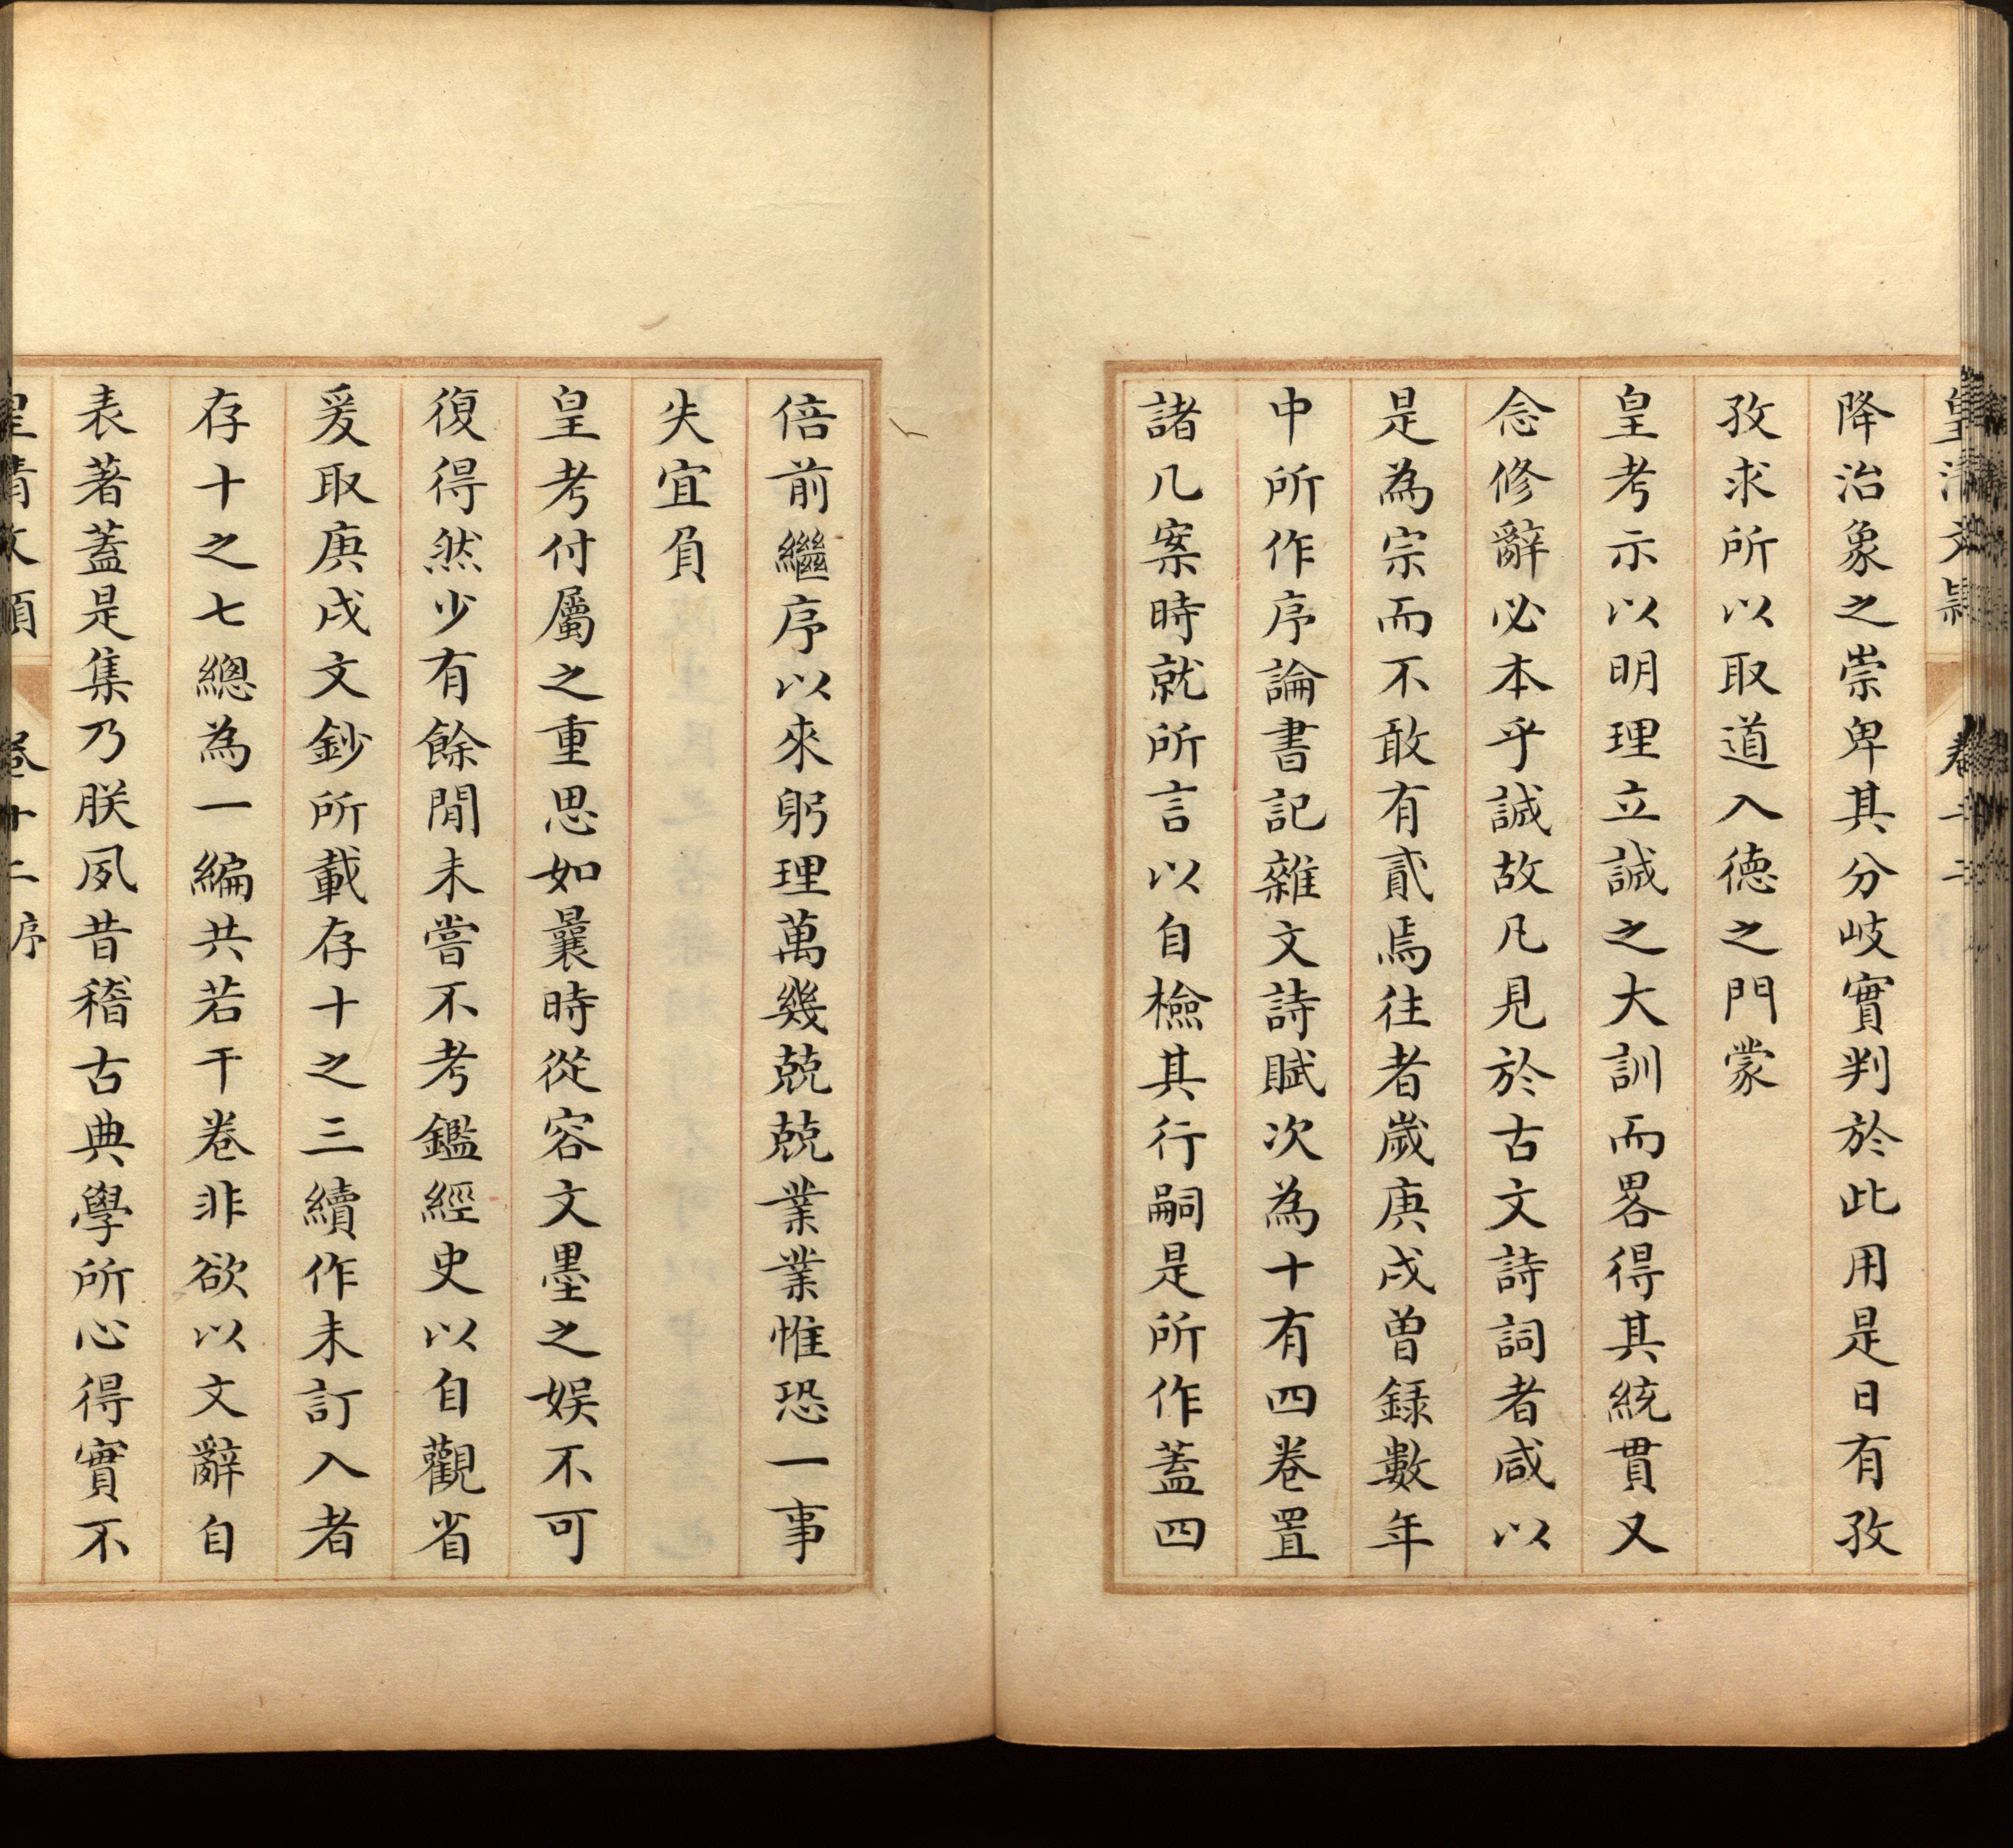 皇清文穎 卷十二
降治象之崇卑其分岐實判於此用是日有孜
孜求所以取道入德之門蒙
皇考示以明理立誠之大訓而畧得其統貫又
念修辭必本乎誠故凡見於古文詩詞者咸以
是為宗而不敢有貳焉往者歲庚戌曾録數年
中所作序論書記雜文詩賦次為十有四卷置
諸几案時就所言以自檢其行嗣是所作蓋四
倍前繼序以來躬理萬幾兢兢業業惟恐一事
失宜負
皇考付屬之重思如曩時從容文墨之娛不可
復得然少有餘閒未嘗不考鑑經史以自觀省
爰取庚戌文鈔所載存十之三續作未訂入者
存十之七總為一編共若干卷非欲以文辭自
表著蓋是集乃朕夙昔稽古典學所心得實不
皇清文穎 卷十二序